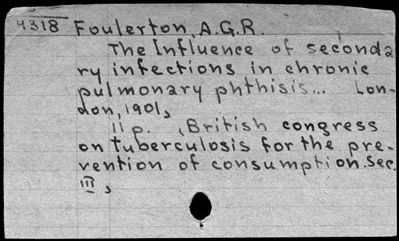 4318 Foulerton, A.G.R.
The Influence of seconda
ry infections in chronic
pulmonary phthisis... Lon-
don, 1901,
11 p. (British congress
on tuberculosis for the pre-
vention of consumption. Sec.
III,